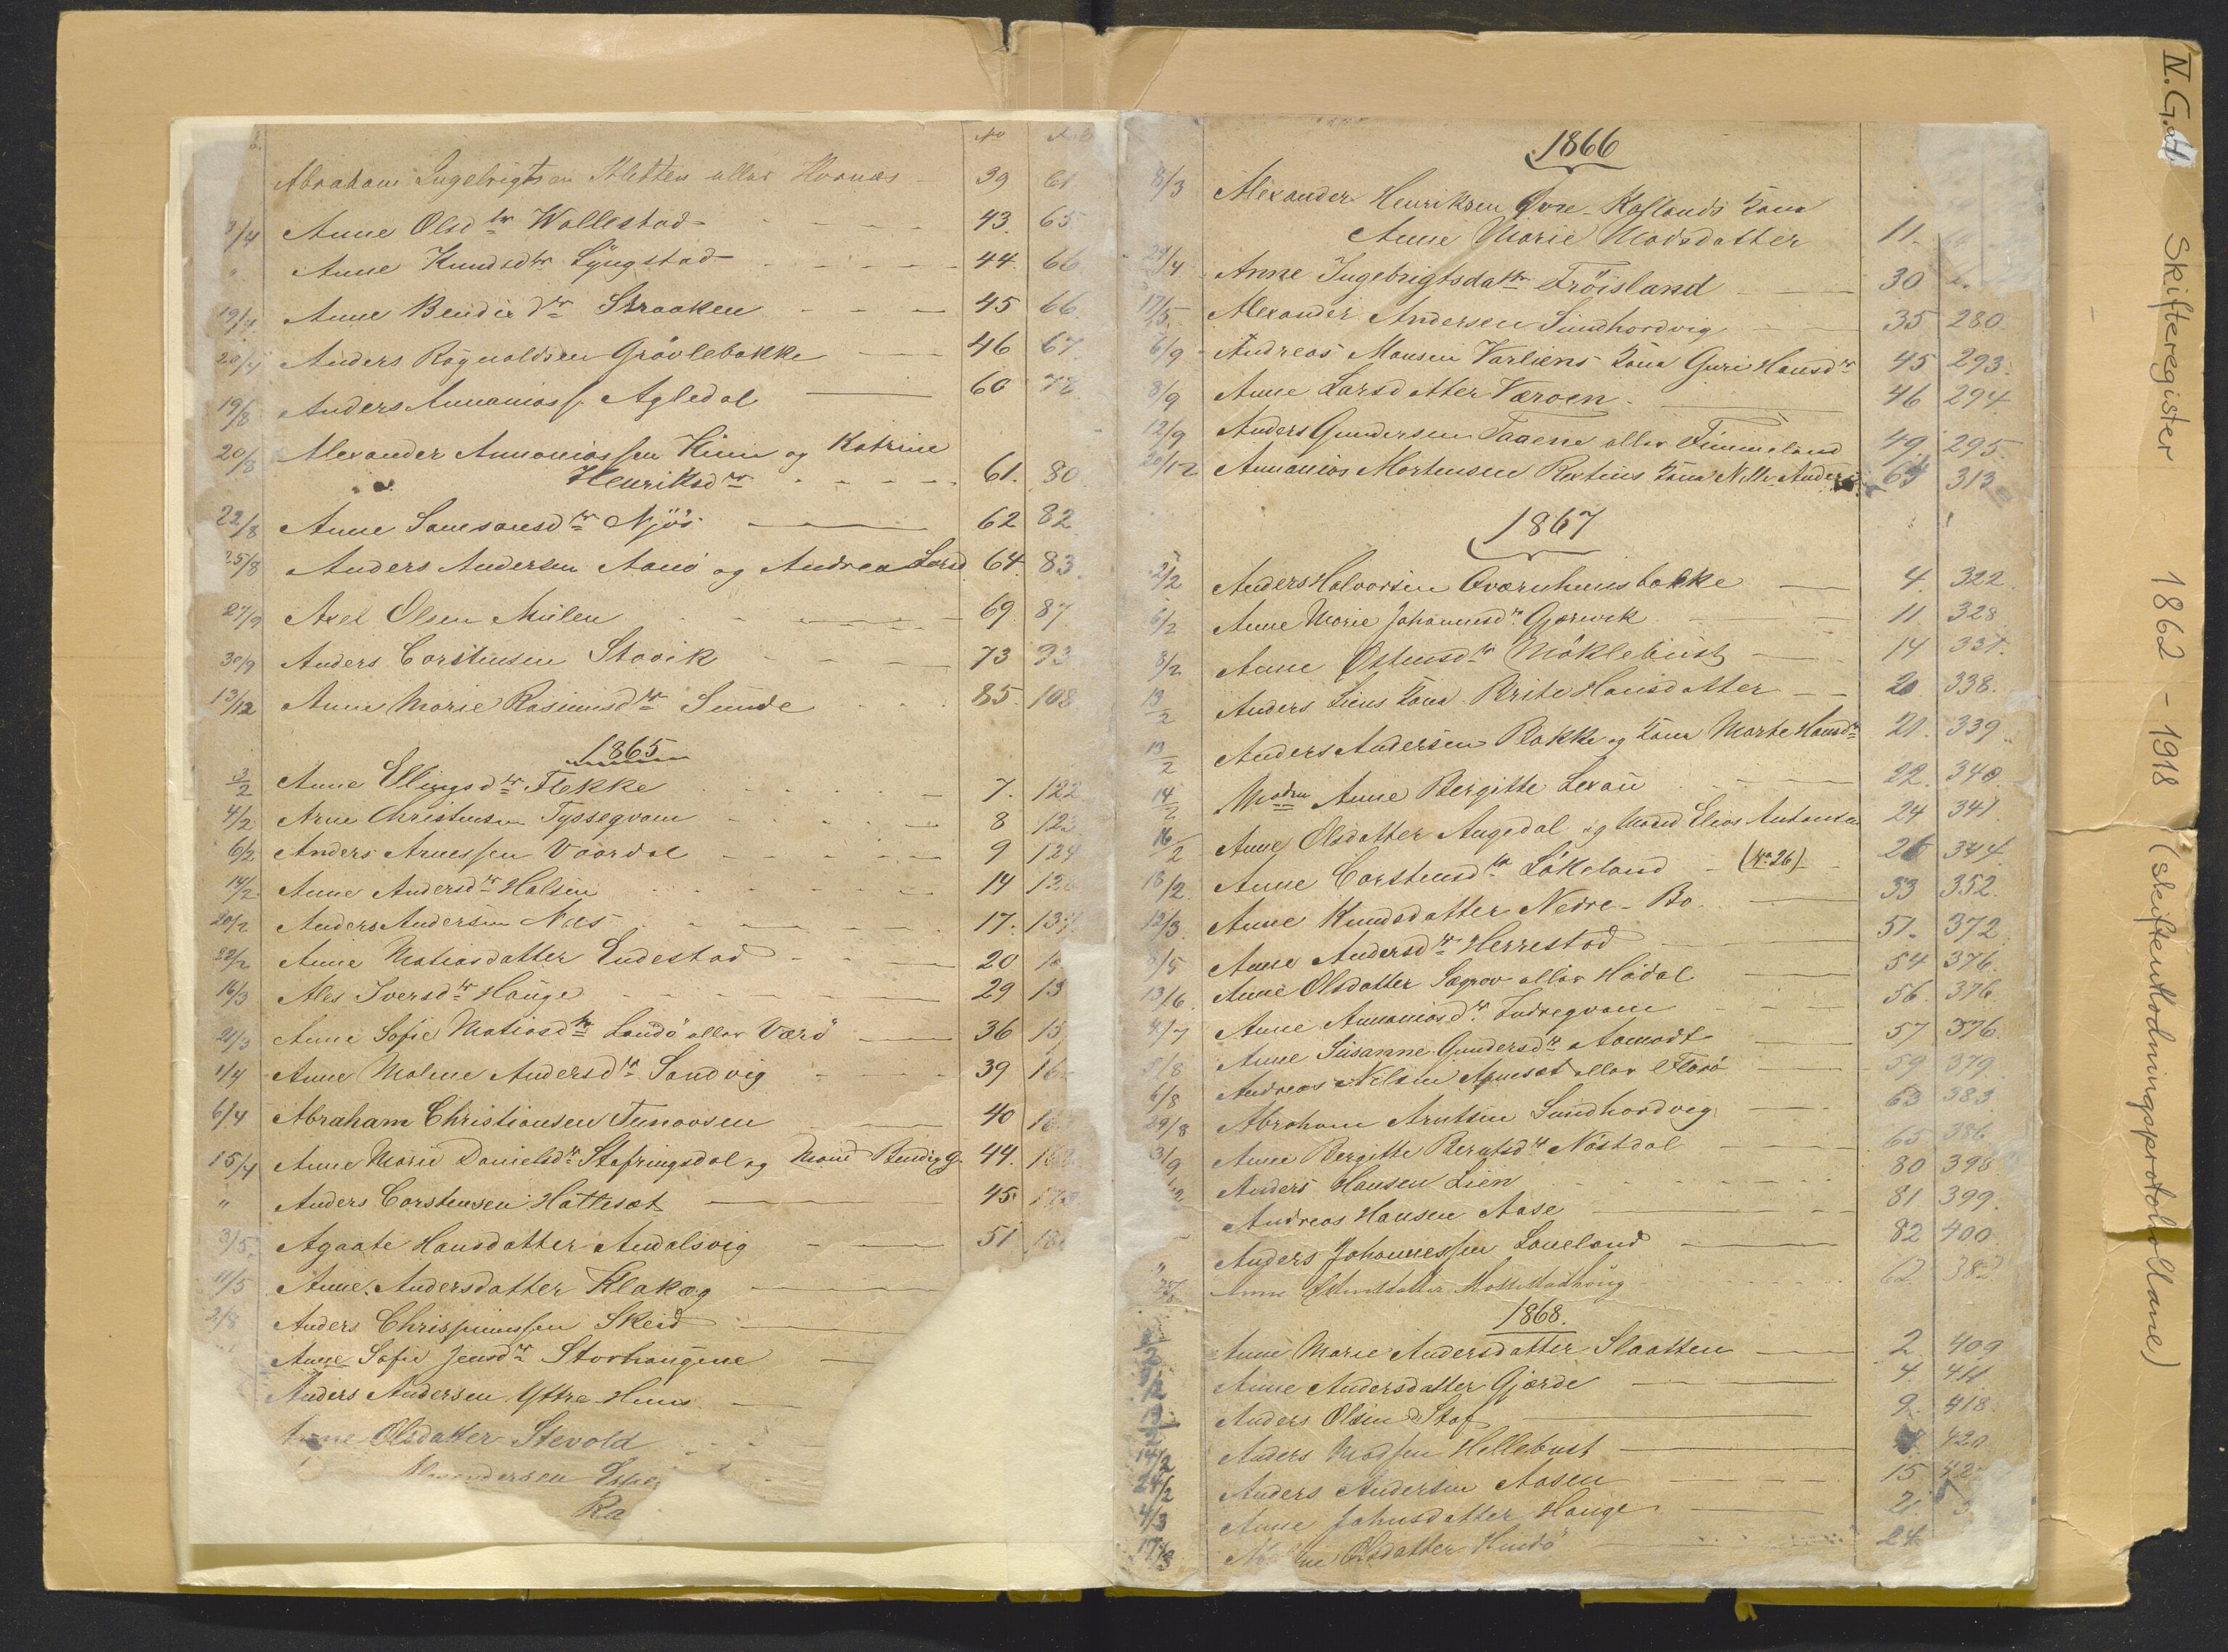 No
Abraham Ingebrigtsen Kletten eller Hornæs 39 61
2/4 Anne Olsdtr Wallestad 43. 65
" Anne Knudsdtr Lyngstad 44. 66
19/4 Anne Bendixdtr Straaken 45 66
20/4 Anders Ragnvaldsen Grövlebakke 46 67
19/8 Anders Annaniass. Agledal 60 78
20/8 Alexander Annaniassen Hinn og Katrine
Henriksdtr 61. 80
22/8 Anne Samsonsdtr Njös 62 82
25/8 Anders Andersen Aanø og Andrea Larsd 64. 83
27/9 Axel Olsen Mulen 69 87
30/9 Anders Carstensen Stavik 73 93
13/12 Anne Marie Rasmusdtr Sunde 85. 108
1865
3/2 Anne Ellingsdtr Flekke 7. 122
4/2 Arne Christensen Tyssegvam 8 12
6/2 Anders Arnessen Vaardal 9 124
14/2 Anne Andersdtr Halsen 14 12
20/2 Anders Andersen Næs 17. 13
22/2 Anne Matiasdatter Endestad 20 1
16/3 Ales Iversdtr Hauge 29 13
21/3 Anne Sofie Matiasdtr Landö eller Værö 36 15
1/4 Anne Malene Andersdtr Sandvig 39 16
6/4 Abraham Christiansen Tunoosen 40 16
15/4 Anne Marie Danielsdtr Stafringsdal og Mand Bendix G. 44. 16
" Anders Carstensen Hattesæt 45. 17
3/5 Agaate Hansdatter Andalsvig 51 18
11/5 Anne Andersdatter Klakæg
2/8 Anders Chrispinussen Skeid
Anne Sofie Jensdtr Storhaugene
Anders Andersen Yttre-Huus
Anne Olsdatter Stevold
Alexandersen
Ra
1866
8/3 Alexander Henriksen Øvre-Kaflands Kone
Anne Marie Madsdatter 11.
24/4 Anne Ingebrigtsdattr Fröisland 30
17/5 Alexander Andersen Sundhordvig 35 280.
6/9 Andreas Monsen Varliens Kone Guri Hansdtr 45 293.
8/9 Anne Larsdatter Værøen 46 294.
12/9 Anders Gundersen Taaene eller Timmeland 49. 295.
20/12 Annanias Mortensen Rixtens Kone Nille Anders 63 313
1867
2/2 Anders Halvorsen Qværnhuusbakke 4. 322
6/2 Anne Marie Johannesdtr Gjørvik 11. 328
8/2 Anne Ostensdtr Möklebust 14 331.
13/2 Anders Liens Kone Brite Hansdatter 20. 338.
13/2 Anders Andersen Bakke og Kone Marte Hansdtr 21. 339
14/2 Madm Anne Bergitte Lexau 22. 340.
16/2 Anne Olsdatter Augedal og Mand Elias Antonsen 24 341.
18/2. Anne Carstensdtr Lökeland (No 26) 26 344.
12/3. Anne Knudsdatter Nedre-Bo 33 352.
8/5 Anne Andersdtr Herrestad 51. 372.
13/6. Anne Olsdatter Sægrov eller Hödal 54 376.
4/7 Anne Annaniasdtr Indregvam 56. 376
3/8 Anne Susanne Gundersdtr Aamodt 57 376
6/8 Andreas Nilsen Apnesæt eller Florö 59 379.
24/8 Abraham Arntsen Sundhordvig 63 383
3/9 Anne Bergitte Berntsdtr Nöstdal 65 386
Anders Hansen Lien 80 398
Andreas Hansen Aase 81 399.
" Anders Johannessen Laneland 82 400.
Anne 62 382
1868.
Anne Marie Andersdatter Slaatten 2 409
Anne Andersdatter Gjærde 4. 411
Anders Olsen Staf 9. 418.
14/2 Anders Madssen Hellebust 420
24/2 Anders Andersen Aasen 15 42
4/3 Anne Johnsdatter Hauge 21.
17/3 ne Olsdatter Hindö 24.
IV. G. 4 Skifteregister 1862 - 1918 (skifteutlodningsprotokollane)